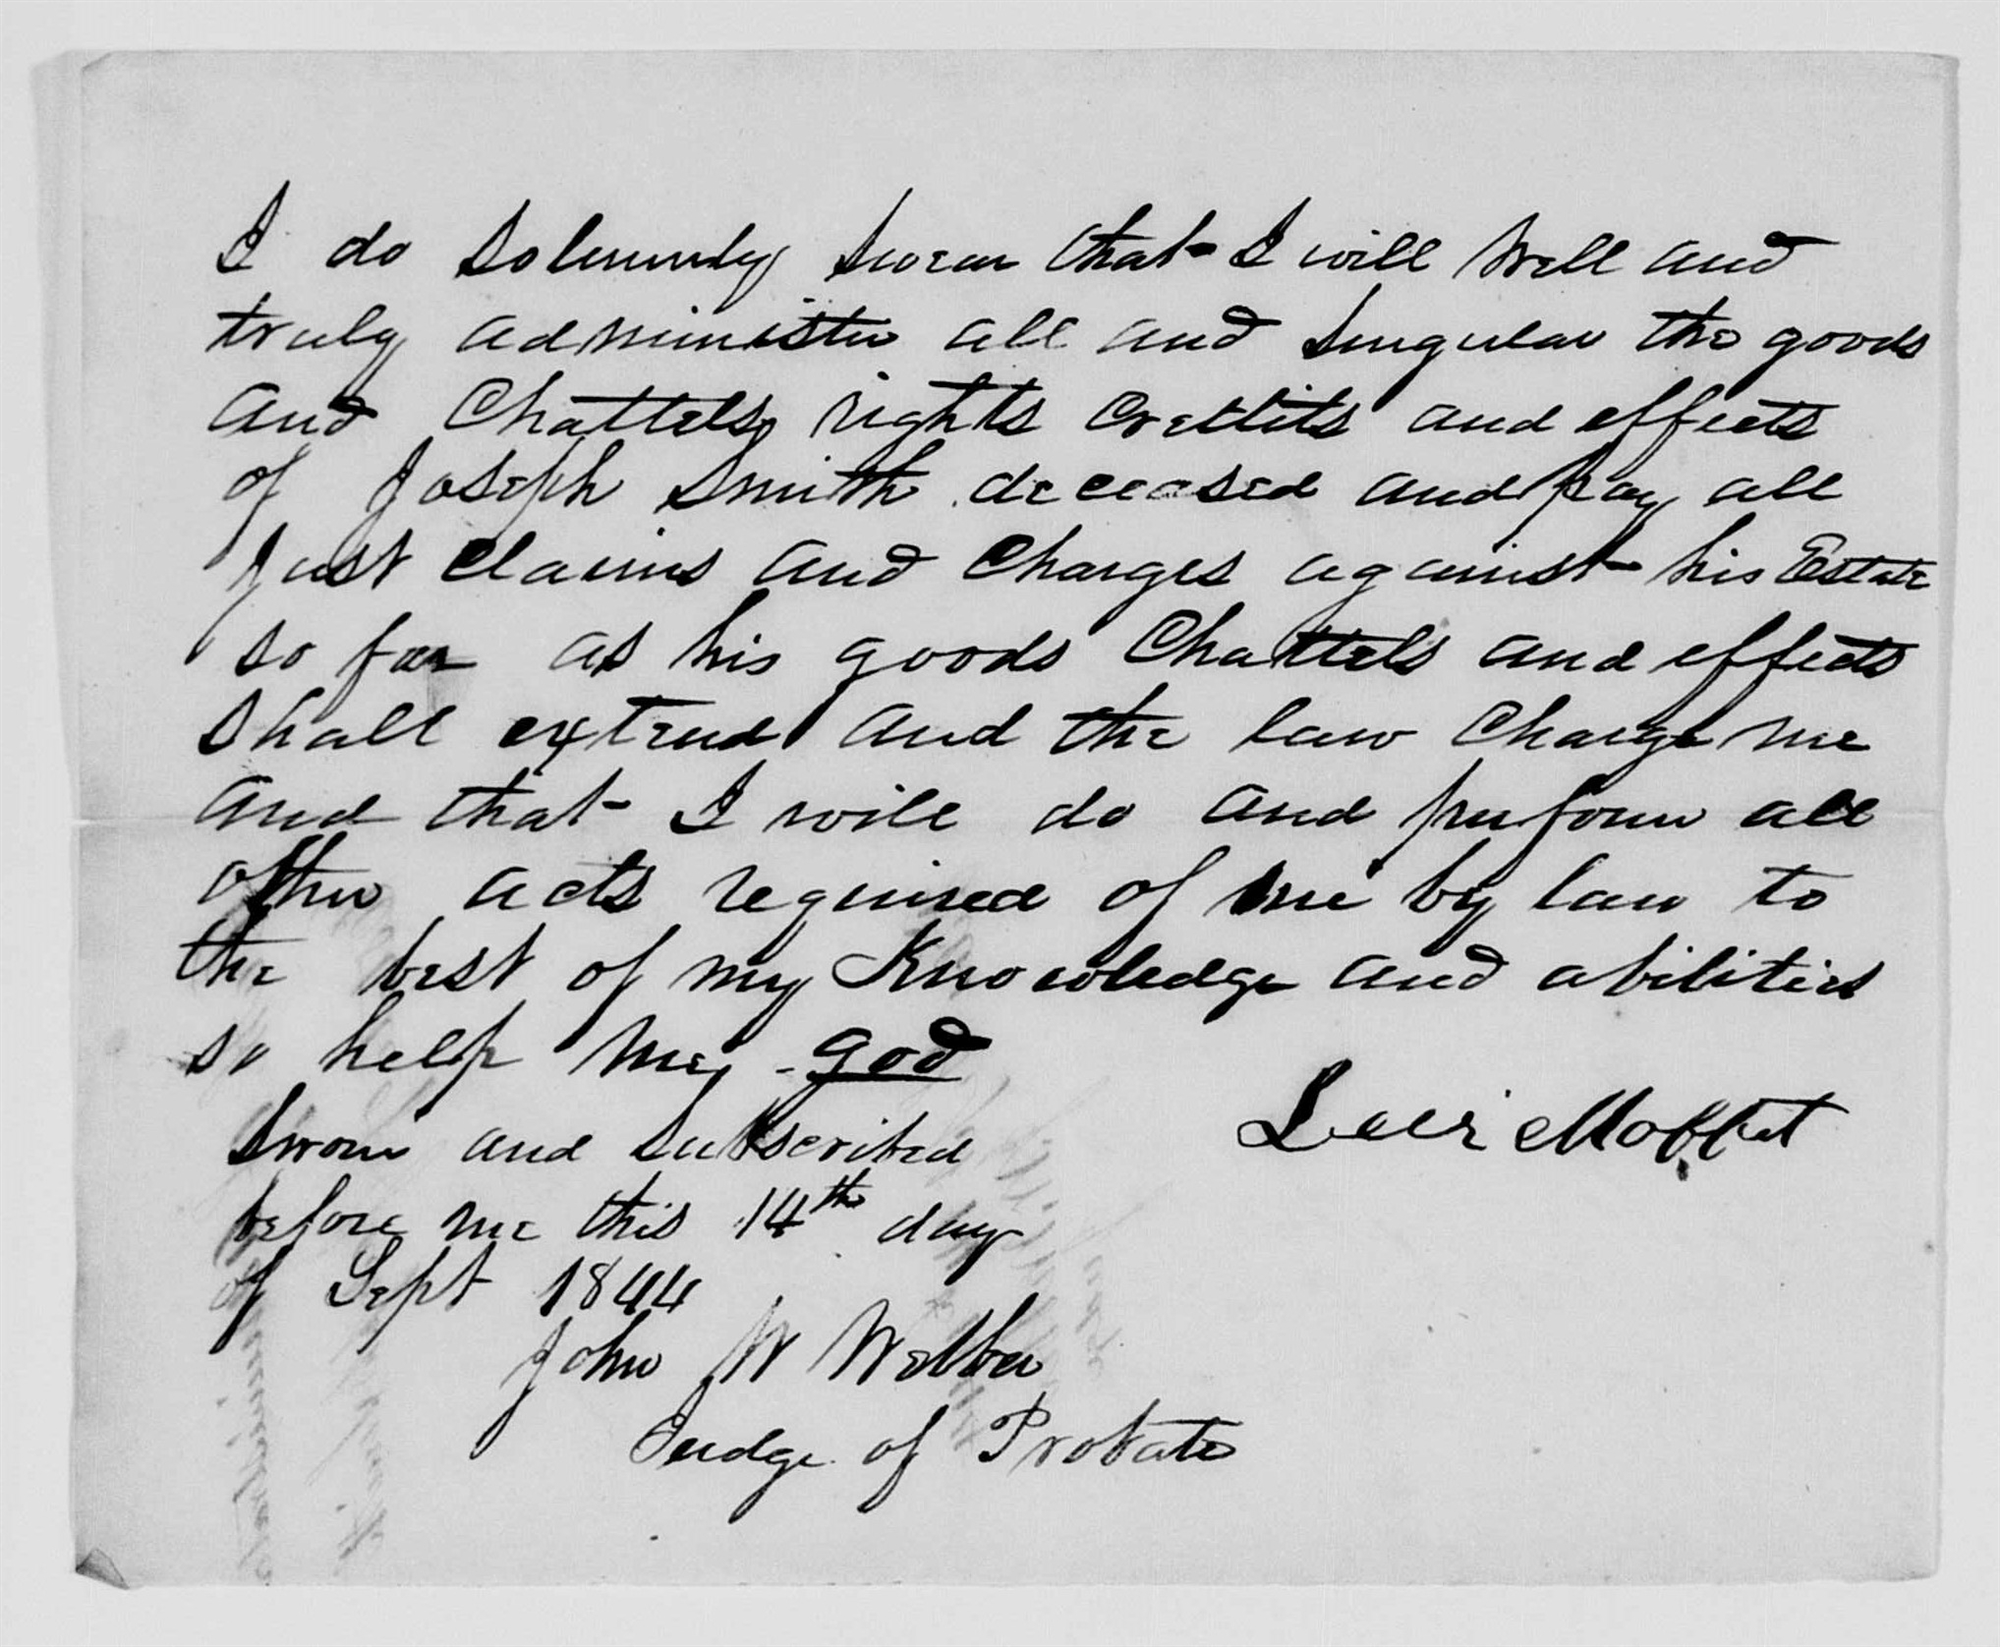 I do Solemnly Swear that I will Well and
truly administer all and Singular the goods
and Chattels, rights Credits and effects
of Joseph Smith deceased and pay all
Just Claims and Charges against his Estate
so far as his goods Chattels and effects
Shall extend and the law Charge me
and that I will do and perform all
other acts required of me by law to
the best of my Knowledge and abilities
so help me, God
Levi Moffet
Sworn and Subscribed
before me this 14th day
of Sept 1844
John W
Judge of Probate